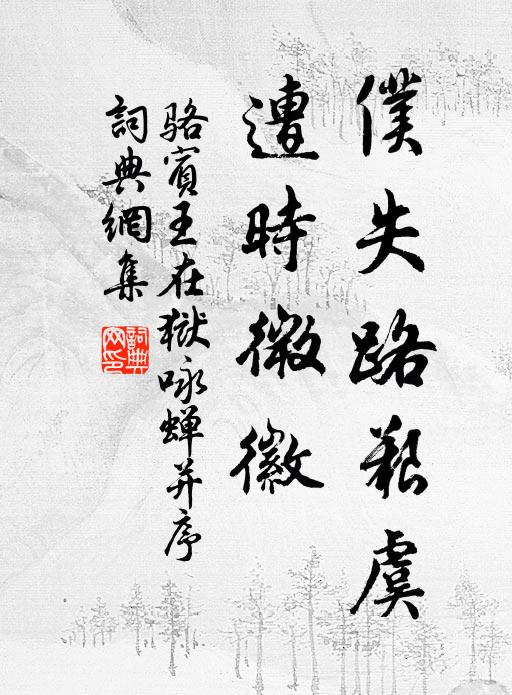 僕失路艱虞
遭時徽徽
駱賓王在獄咏蝉并序
詞典網集
詞典網印